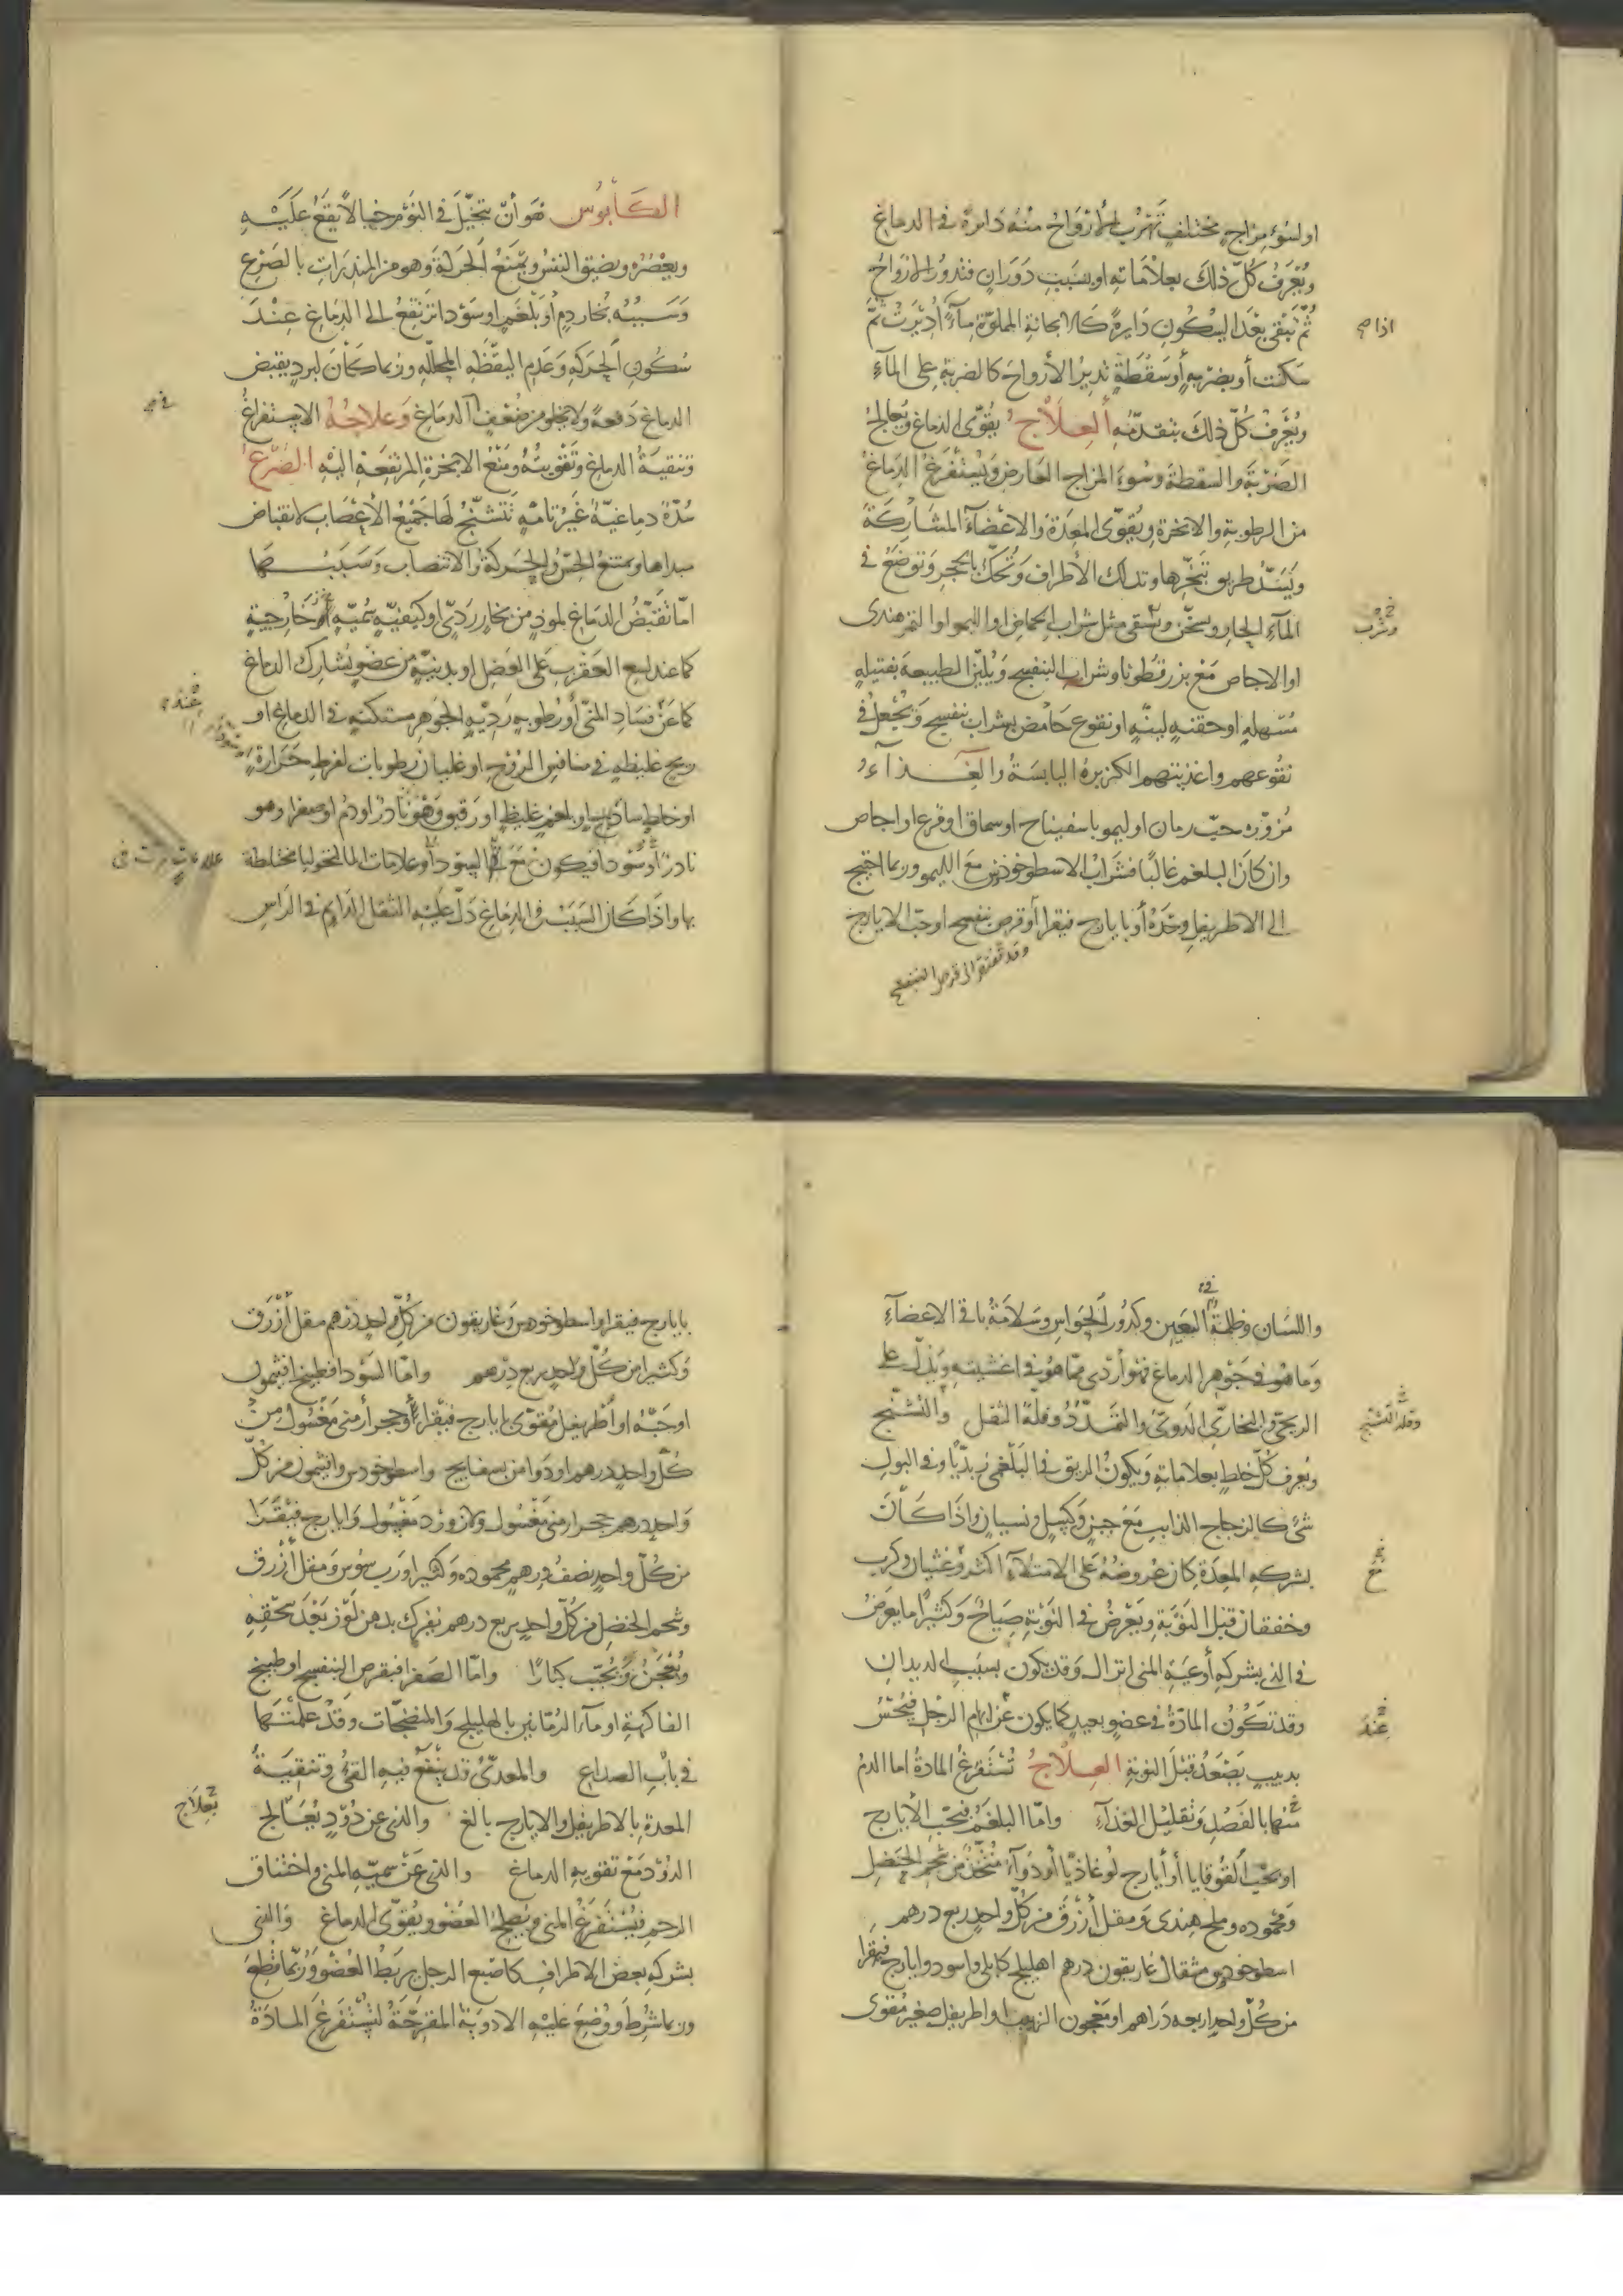 او لسوء مزاج مختلف تهرب الأرواح منه دائرة في الدماغ
ويُعرَف كلّ ذلك بعلاماته او بسبب دوران فتدور الارواح
ثم تبقى بعد السكون دايرة كالاجانة المملوّة مآءً اديرت ثم
اذا صح
سكنت أو بضربة أو سقطة تدير الأرواح كالضربة على المآء
ويُعرف كلّ ذلك بتقدمه العلاج يقوّى الدماغ ويعالج
الضربة والسقطة وسوء المزاج العارض ويستفرغ الدماغ
من الرطوبة والابخرة ويقوّى المعدة والاعضآء المشاركة
ويسدّ طريق تبخّرها وتدلك الأطراف وتحكّ بالحجر وتوضع في
المآء الحار ويسخّن ويسقى مثل شراب الحماض او الليمو او التمر هندى
وشرب
او الاجاص مع بزر قطونا وشراب البنفسج ويليّن الطبيعة بفتيلة
مسهلة او حقنة لينة او نقوع حامض بشراب بنفسج ويجعل في
نقوعهم واغذيتهم الكزبرة اليابسة والغذآء
مزوّرة حبّ رمان او ليمو باسفيناج او سماق او قرع او اجاص
وان كان البلغم غالبًا فشراب الاسطوخوذس مع الليمو وربما احتيج
الى الاطريفل وحده أو بايارج فيقرا أو قرص بنفسج او حبّ الايارج
وقد تفتقر الى قرص البنفسج
الكابوس هو أن يتخيّل في النوم خيالا يقع عليه
ويعصره ويضيق النفس ويمنع الحركة وهو من المنذرات بالصرع
وسببه بخار دم او بلغم او سودا ترتفع الى الدماغ عند
سكون الحركة وعدم اليقظة المحلّلة وربما كان لبرد يقبض
الدماغ دفعة ولا يخلو من ضعف الدماغ وعلاجه الاستفراغ
وتنقية الدماغ وتقويته ومنع الابخرة المرتفعة اليه الصرع
سدّة دماغية غير تامة تتشنج لها جميع الأعصاب لانقباض
مبداها ويمتنع الحس والحركة والانتصاب وسببها
امّا تقبّض الدماغ لموذ من بخار ردىّ او كيفيّة سمّية خارجية
كما عند لسع العقرب على العضل او بدنية من عضو يشارك الدماغ
عند
كما عن فساد المنىّ أو رطوبة رديّة الجوهر متمكنة في الدماغ او
ريح غليظة في منافس الروح او غليان رطوبات لفرط حرارة
او خلط ساذج او بلغم غليظ او رقيق وهو نادر او دم او صفرا وهو
نادر أو سودا فيكون مع السودا وعلامات المالنخوليا مختلطة
علامات
بها واذا كان السبب في الدماغ دلّ عليه الثقل الدايم في الراس
واللسان وظلمة العين وكدور الحواس وسلامة باقي الاعضآء
وما هو في جوهر الدماغ فهو أردى ممّا هو في اغشيته ويدلّ على
الريحى والبخارى الدوىّ والتمدّد وقلة الثقل والتشنج
وقلة التشنج
ويعرف كلّ خلط بعلاماته ويكون الريق في البلغمى زبديّا وفي البول
شىء كالزجاج الذايب مع جبن وكسل ونسيان واذا كان
بشركة المعدة كان عروضه على الامتلآء اكثر وغشيان وكرب
وخفقان قبل النوبة ويعرض في النوبة صياح وكثيرًا ما يعرض
في الذى بشركة أوعية المنى انزال وقد يكون بسبب الديدان
وقد تكون المادّة في عضو بعيد كما يكون عن ابهام الرجل فيحسّ
عند
بدبيب يصعد قبل النوبة العلاج تستفرغ المادة اما الدم
منها بالفصد وتقليل الغذآء وامّا البلغم فبحبّ الأيارج
او بحبّ القوقايا أو أيارج لوغاذيّا أو دوآء متّخذ من شحم الحنضل
ومحموده وملح هندى ومقل أزرق من كلّ واحد ربع درهم
اسطوخودس مثقال غاريقون درهم اهليلج كابلى واسود وايارج فيقرا
من كلّ واحد اربعة دراهم او معجون الزبيب او اطريفل صغير مقوى
بايارج فيقرا واسطوخودس وغاريقون من كلّ واحد درهم مقل أزرق
وكثيرا من كلّ واحد ربع درهم وامّا السودا فطبيخ افتيمون
اوحبّه او اطريفل مقوّى بايارج فيقرا أو حجر أرمنى مغسول من
كلّ واحد درهم او دوا من بسفايج واسطوخودس وافتيمون من كلّ
واحد درهم حجر ارمنى مغسول ولازورد مغسول وايارج فيقرا
من كلّ واحد نصف درهم محموده وكثيرا ورب سوس ومقل أزرق
وشحم الحنضل من كلّ واحد ربع درهم يفرك بدهن لوز بعد سحقه
ويعجن ويحبّب كبارًا وامّا الصفرا فبقرص البنفسج او طبيخ
الفاكهة او مآء الرمّانين بالهليلج والمنضجات وقد علمتها
في باب الصداع والمعدىّ قد ينفع فيه القىء وتنقية
المعدة بالاطريفل والايارج بالغ والذى عن دُوّد يعالج
بعلاج
الدود مع تقوية الدماغ والذى عن سميّة المنى واختناق
الرحم فيستفرغ المنى ويصلح العضو ويقوّى الدماغ والذى
بشركة بعض الاطراف كاصبع الرجل يربط العضو وربّما قطع
وربما شرط ووضع عليه الادوية المقرحة لتستفرغ المادة